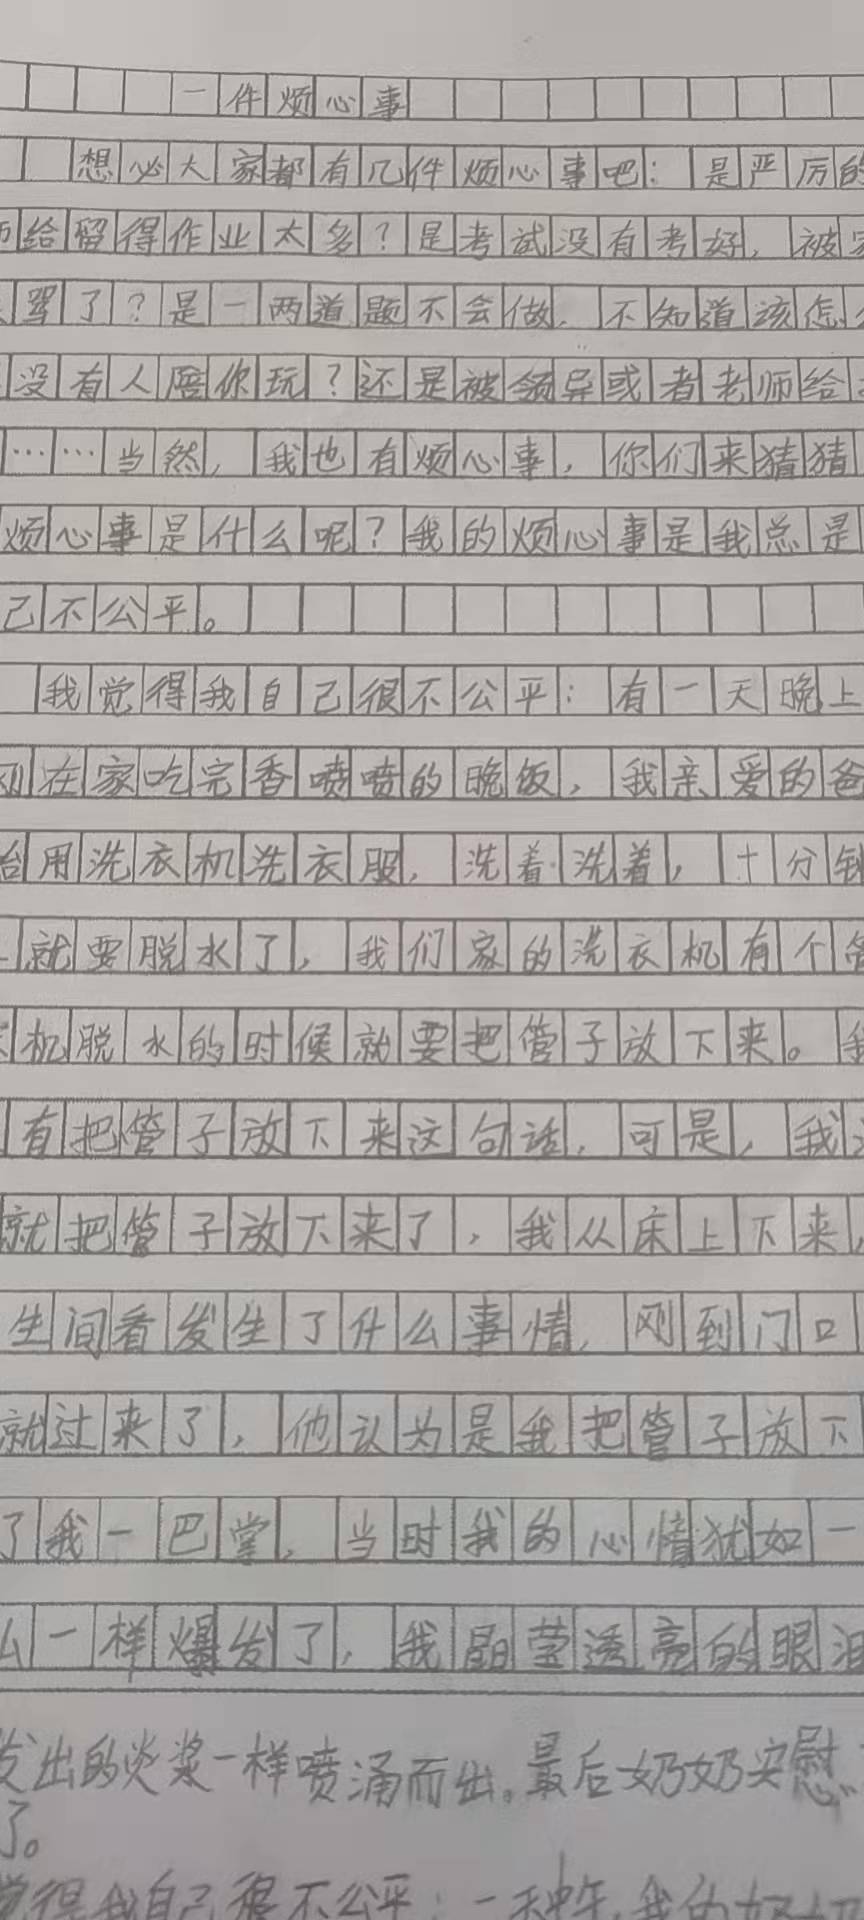 一件烦心事
想必大家都有几件烦心事吧：是严厉的
师给留得作业太多？是考试没有考好，被家
骂了？是一两道题不会做，不知道该怎么
没有人陪你玩？还是被领导或者老师给
……当然，我也有烦心事，你们来猜猜
烦心事是什么呢？我的烦心事是我总是
己不公平。
我觉得我自己很不公平：有一天晚上
刚在家吃完香喷喷的晚饭，我亲爱的爸
始用洗衣机洗衣服，洗着洗着，十分钟
就要脱水了，我们家的洗衣机有个管
机脱水的时候就要把管子放下来。我
有把管子放下来这句话，可是，我没
就把管子放下来了，我从床上下来，
生间看发生了什么事情，刚到门口
就过来了，他认为是我把管子放下
了我一巴掌，当时我的心情犹如一
么一样爆发了，我晶莹透亮的眼泪
发出的炎浆一样喷涌而出。最后奶奶安慰
了。
觉得我自己很不公平：一种午，我的奶奶